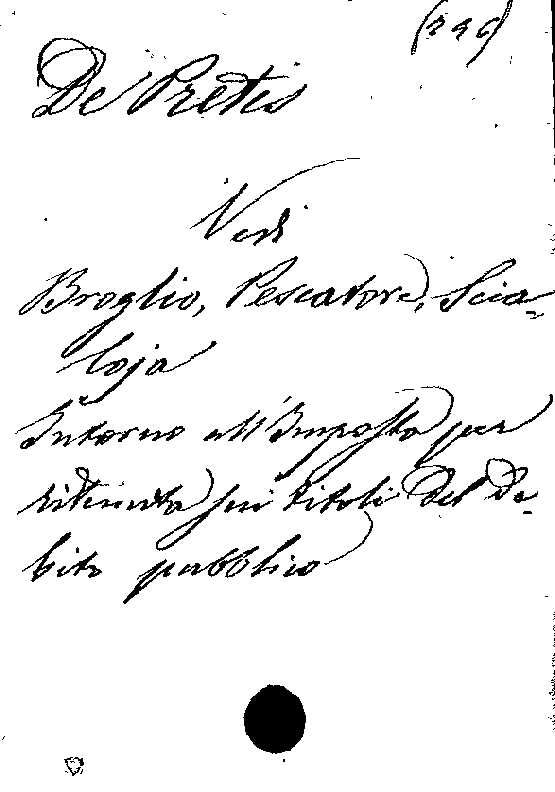 De Pretis
Vedi
Broglio, Pescatore, Scia-
loja
Intorno all'Imposta per
ritenuta sui titoli del De-
bito pubblico